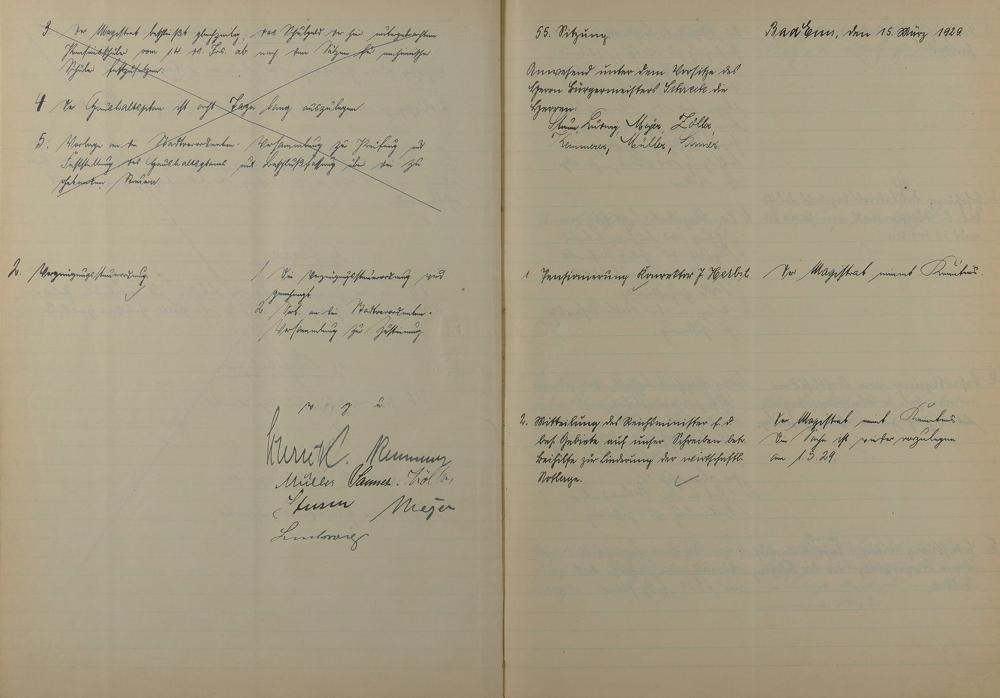 3. Der Magistrat beschließt gleichzeitig, das Schulgeld der hier untergebrachten
vom 14. ds. Js. ab nach den Sätzen für
Schule festzusetzen.
4 Der Haushaltsplan ist acht Tage lang auszulegen
5. Vorlage an die Stadtverordneten-Versammlung zur Prüfung und
Feststellung des Haushaltsplans und Beschlußfassung über die zu
erhebenden Steuern.
2. Vergnügungssteuerordnung
1. Die Vergnügungssteuerordnung wird
genehmigt
2. an die Stadtverordneten-
Versammlung zur Zustimmung
v g u
Müller Sauner Zöller
Sturm Meyer
Ludwig
55. Sitzung
Bad Ems, den 15. März 1929
Anwesend unter dem Vorsitze des
Herrn Bürgermeisters die
Herren:
Sturm, Ludwig, Meyer, Zöller,
Kemmerer, Müller, Sauner
1 Pensionierung Konrektor J Herbel
Der Magistrat nimmt Kenntnis.
2. Mitteilung des Reichsminister f. d
bes. Gebiete auf unser Schreiben betr.
Beihilfe zur Linderung der wirtschaftl.
Notlage.
Der Magistrat nimmt Kenntnis
Die Sache ist weiter vorzulegen
am 1.5.29.